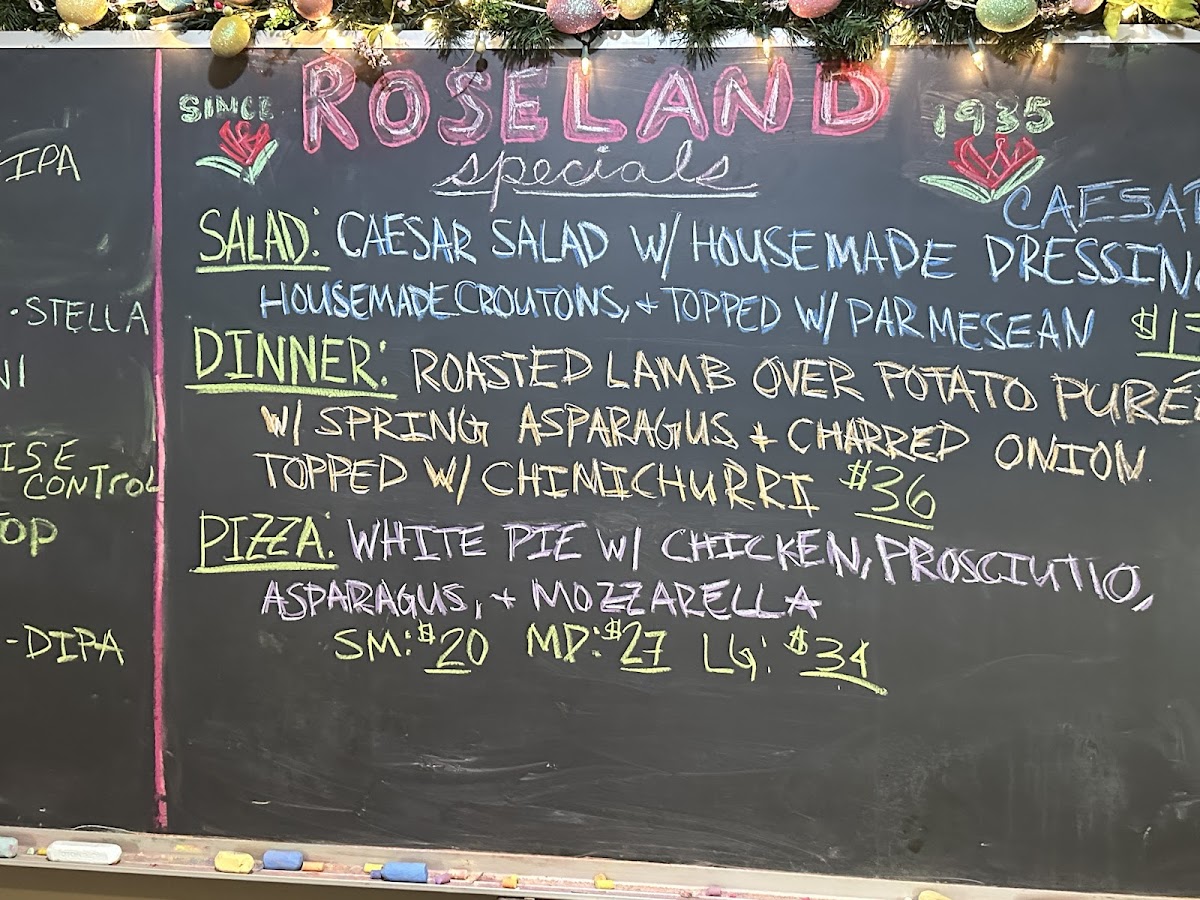 IPA
· STELLA
NI
ISE
CONTROL
TOP
- DIPA
SINCE ROSELAND 1935
specials
CAESA
SALAD: CAESAR SALAD W/ HOUSEMADE DRESSIN
HOUSEMADE CROUTONS, + TOPPED W/ PARMESEAN $1
DINNER: ROASTED LAMB OVER POTATO PURÉ
W/ SPRING ASPARAGUS + CHARRED ONION
TOPPED W/ CHIMICHURRI $36
PIZZA: WHITE PIE W/ CHICKEN, PROSCIUTTO,
ASPARAGUS, + MOZZARELLA
SM: $20 MD: $27 LG: $34